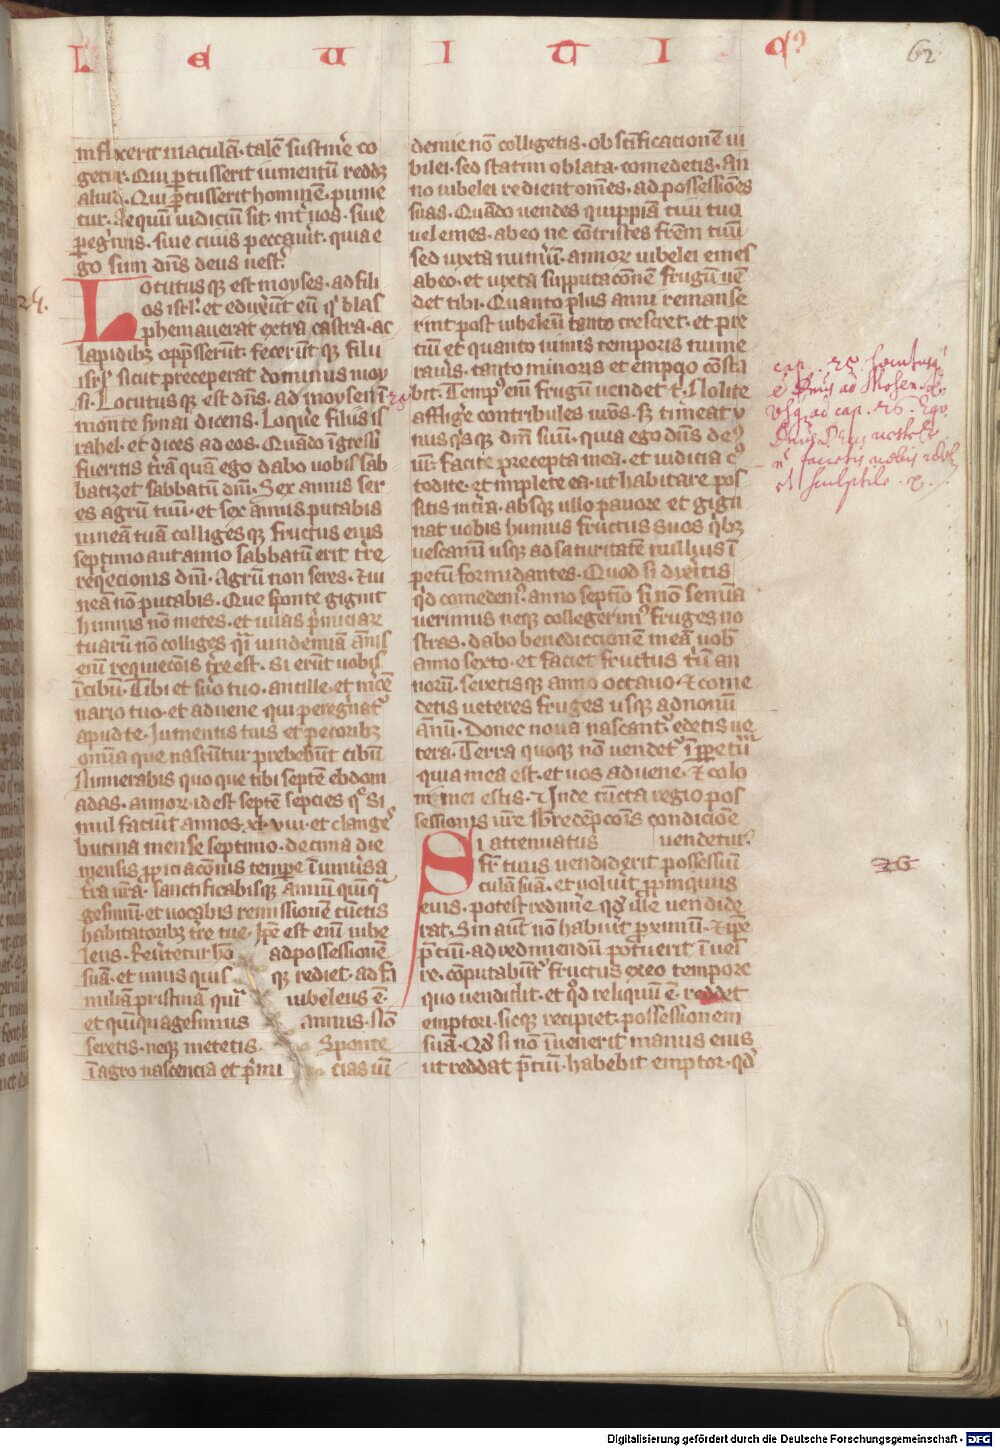 L E U I T I C9
62
inflixerit maculã. talẽ sustin̉e co
getur. Qui ꝑcusserit iumentũ reddꝫ
aliud. Qui ꝑcusserit hominẽ. punie
tur. Aequũ iudiciũ sit. int̉ uos. siue
pegrinus. siue ciuis peccauit̉. quia e
go sum dñs deus uest̉.
Locutus qꝫ est moyses. ad fili
os isrl. et eduxert̃ eũ q̉ blas
phemauerat extra castra. ac
lapidibꝫ opp̃sserũt. fecerũt qꝫ filii
isrl sicut preceperat dominus moy
si. Locutus qꝫ est dñs. ad moysen ĩ
monte synai dicens. Loq̉re filiis is
rahel. et dices ad eos. Quãdo ĩgressi
fueritis t̉rã quã ego dabo uobis sab
batizet sabbatũ dñi. Sex annis ser
es agrũ tuũ. et sex ãnis putabis
uineã tuã colliges qꝫ fructus eius
septimo aut anno sabbatũ erit t̉re
reqecionis dñi. Agrũ non seres. et ui
neã nõ putabis. Que sponte gignit
humus nõ metes. et uuas p̉miciare
tuarũ nõ colliges q̉i uindemiã ãnis
enĩ requiecõis t̉re est. Si erũt uobis
ĩ cibũ. Tibi et s̉uo tuo. ancille. et m̉ce
nario tuo. et aduene qui peregrinat̉
apud te. Iumentis tuis et pecoribꝫ
omnia que nascũtur prebebũt cibũ
Numerabis quo que tibi septẽ ebdom
adas. annoꝝ. id est septẽ sepcies q̉ si
mul faciũt annos. xl. viii. et clange
bucina mense septimo. decima die
mensis ꝓpiciacõnis tempe ĩ uniủsa
t̉ra ur̃a. Sanctificabisqꝫ annũ quiq̉
gesimũ. et uocabis remissionẽ cũctis
habitatoribꝫ t̉re tue. Ip̃e est enĩ iube
leus. Reủtetur hõ ad possessionẽ
suã. et unus quis qꝫ rediet. ad fa
miliã pristinã quia iubeleus ẽ.
et quĩquagesimus annus. Nõ
seretis. neqꝫ metetis. Sponte
ĩ agro nascencia et p̉mi cias uĩ
demie nõ colligetis. ob sc̃ificacionẽ iu
bilei. sed statim oblata. comedetis. An
no iubelei redient om̃es. ad possessiões
suas. Quãdo uendes quippiã ciui tuo
uel emes. ab eo ne cõtristes fr̃em tuũ
sed iuxta num̉ũ. annoꝝ iubelei emes
ab eo. et iuxta supputacõnem frugũ uẽ
det tibi. Quanto plus anni remanse
rint post iubeleũ tanto crescret. et pre
ciũ et quanto minus temporis nume
rauis. tanto minoris et empcio cõsta
bit. Temp̉ enĩ frugũ uendet t̉. Nolite
affligẽ contribules ur̃os. Sꝫ timeat u
nus q̉s qꝫ dm̃ suũ. quia ego dñs de9
ur̃. Facite precepta mea. et iudicia c9
todite. et implete ea. ut habitare pos
sitis in t̉ra. absqꝫ ullo pauore et gign
nat uobis humus fructus suos q̉bꝫ
uescamĩ usqꝫ ad saturitatẽ nullius ĩ
petũ formidantes. Quod si dixeitis
q̉d comedem9 anno septĩo si nõ semĩa
uerimus neqꝫ collegerim9 fruges no
stras. dabo benediccionẽ meã uob̃
anno sexto. et faciet fructus t̉iũ an
norũ. seretis qꝫ anno octauo. et come
detis ueteres fruges usqꝫ ad nonũ
ãnũ. Donec noua nascant̉. edetis ue
tera. Terra quoqꝫ nõ uendet̉ ĩ ꝑpetũ
quia mea est. et uos aduene. et colo
ni mei estis. Unde cũcta regio pos
sessionis ur̃e sb̃ redẽpcõis condiciõe
Si attenuatus uendetur
fr̃ tuus uendiderit possessiũ
culã suã. et uoluit̉ ꝓpinquus
eius. potest redim̉e q̉d ille uendide
rat. Sin aut̃ nõ habuit̉ ꝓximũ. et ip̃e
p̃ciũ. ad redimendũ potuerit ĩ ueĩ
re. cõputabũt̉ fructus ex eo tempore
quo uendidit. et q̉d reliquũ ẽ. reddet
emptori. sicqꝫ recipiet. possessionem
suã. Qd̉ si nõ ĩ uenerit manus eius
ut reddat p̃ciũ. habebit emptor. qd̉
24.
25
cap. 25. Locutusq̉
e Dn̄us ad Mosen.
vsq̉ ad cap. 26. Ego
Dnus Deus
faciatis uobis idol
et sculptile. x.
26
Digitalisierung gefördert durch die Deutsche Forschungsgemeinschaft - DFG